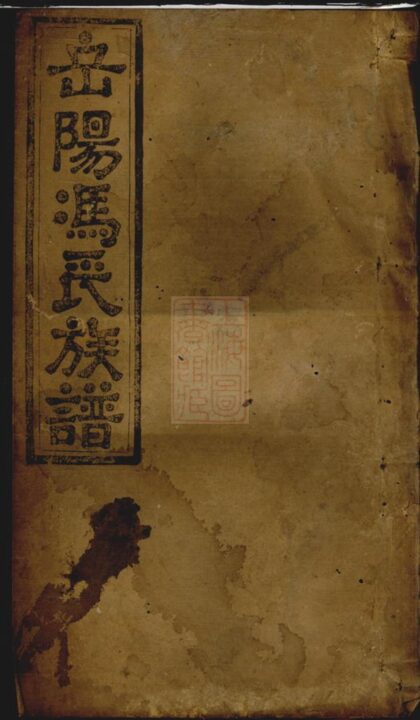 岳陽馮氏族譜